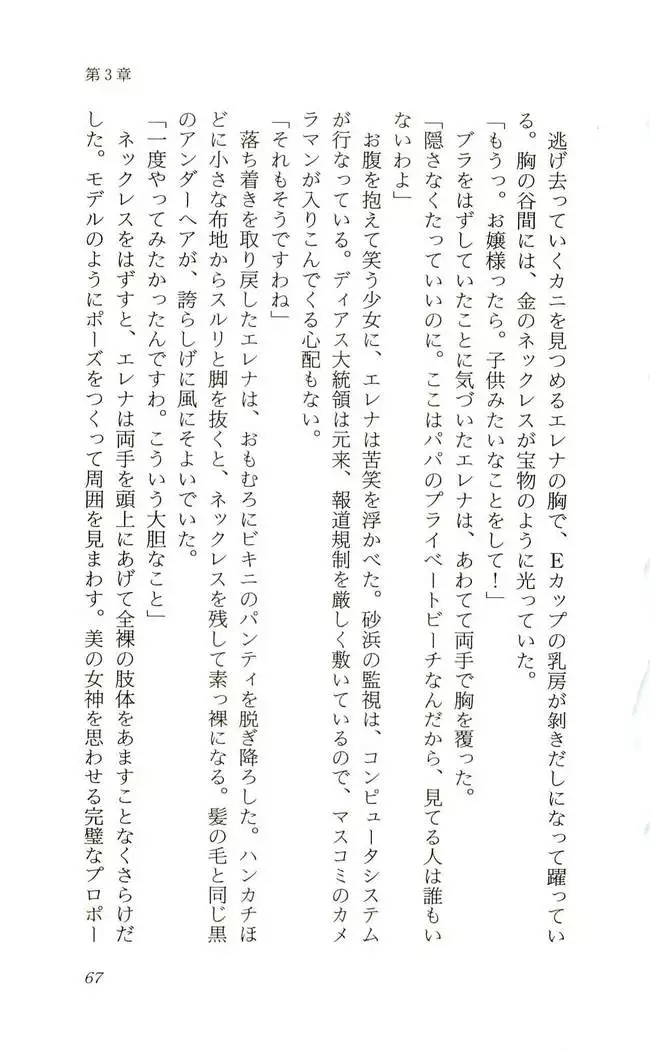 第3章
逃げ去っていくカニを見つめるエレナの胸で、Eカップの乳房が剝きだしになって躍ってい
る。胸の谷間には、金のネックレスが宝物のように光っていた。
「もうっ。お嬢様ったら。子供みたいなことをして！」
ブラをはずしていたことに気づいたエレナは、あわてて両手で胸を覆った。
「隠さなくたっていいのに。ここはパパのプライベートビーチなんだから、見てる人は誰もい
ないわよ」
お腹を抱えて笑う少女に、エレナは苦笑を浮かべた。砂浜の監視は、コンピュータシステム
が行なっている。ディアス大統領は元来、報道規制を厳しく敷いているので、マスコミのカメ
ラマンが入りこんでくる心配もない。
「それもそうですわね」
落ち着きを取り戻したエレナは、おもむろにビキニのパンティを脱ぎ降ろした。ハンカチほ
どに小さな布地からスルリと脚を抜くと、ネックレスを残して素っ裸になる。髪の毛と同じ黒
のアンダーヘアが、誇らしげに風にそよいでいた。
「一度やってみたかったんですわ。こういう大胆なこと」
ネックレスをはずすと、エレナは両手を頭上にあげて全裸の肢体をあますことなくさらけだ
した。モデルのようにポーズをつくって周囲を見まわす。美の女神を思わせる完璧なプロポー
67